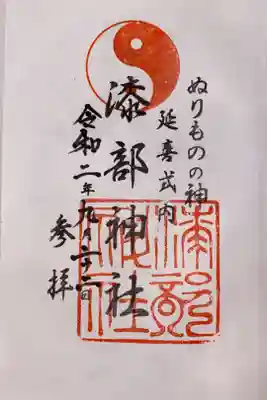 ぬりものの神
延喜式内
漆部神社
令和二年九月二十二日
参拝
漆部
神社